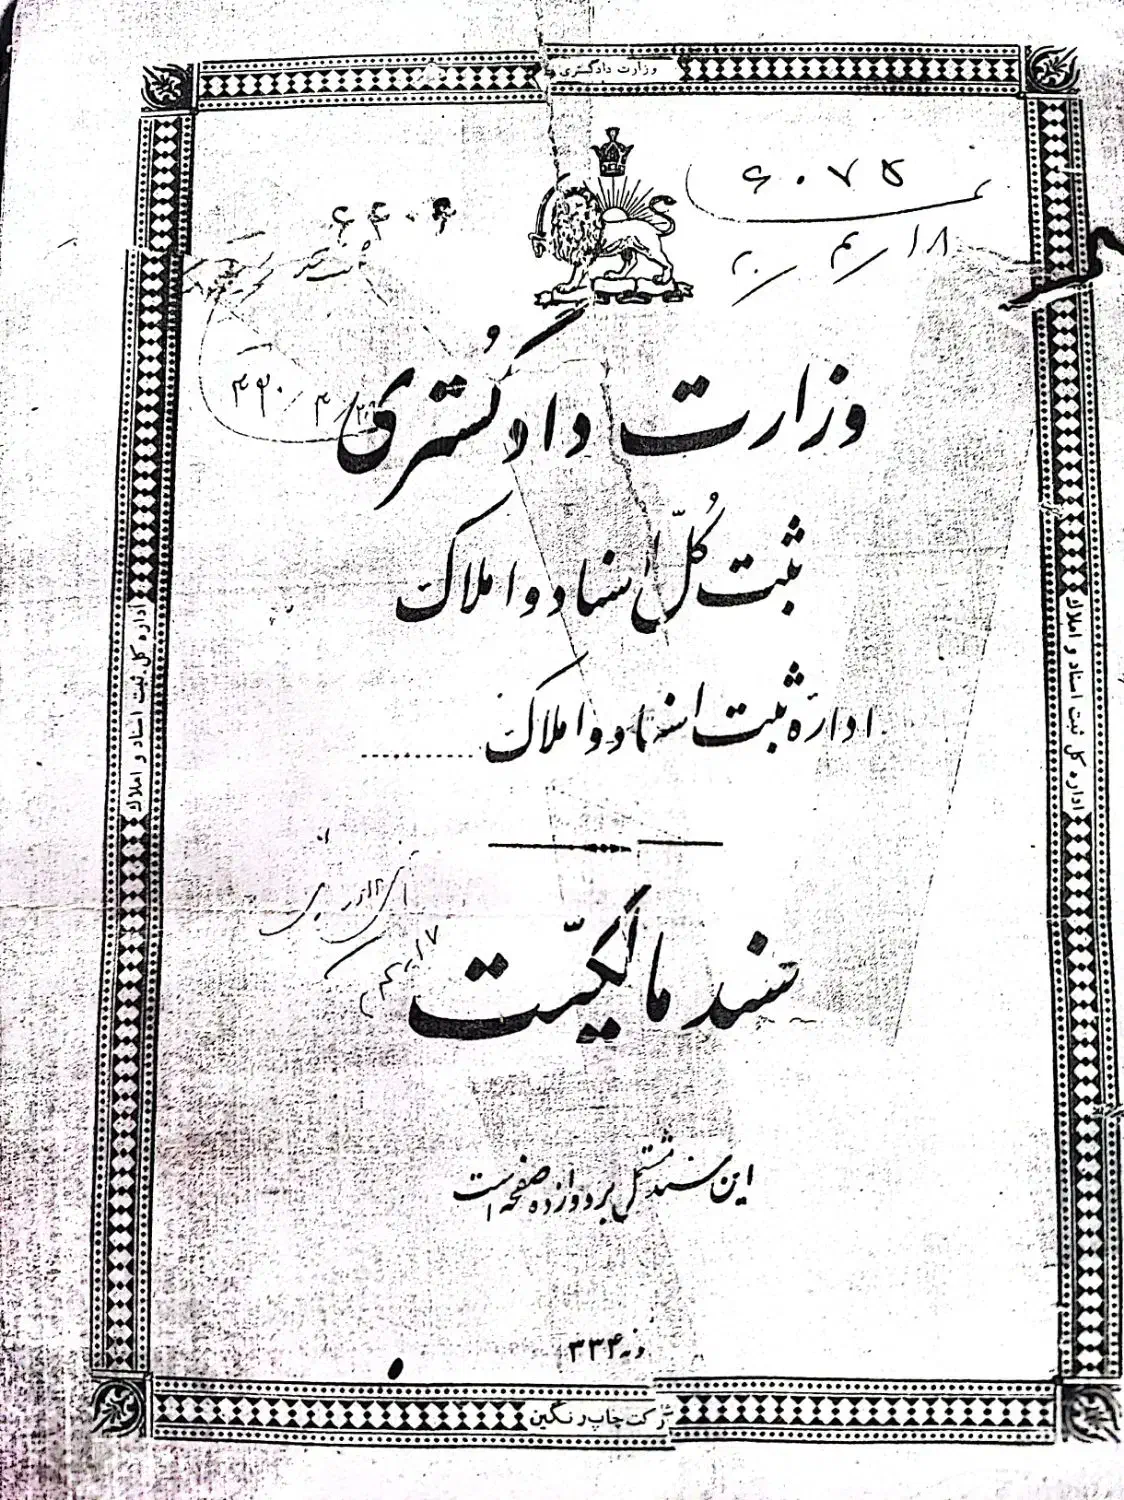 وزارت دادگستری
۶۰۷۵
۶۴۰۴
وزارت دادگستری
ثبت کل اسناد و املاک
اداره ثبت اسناد و املاک ..........
اداره کل ثبت اسناد و املاک
اداره کل ثبت اسناد و املاک
سند مالکیّت
این سند مشتمل بر دوازده صفحه است
۳۳۴
شرکت چاپ رنگین